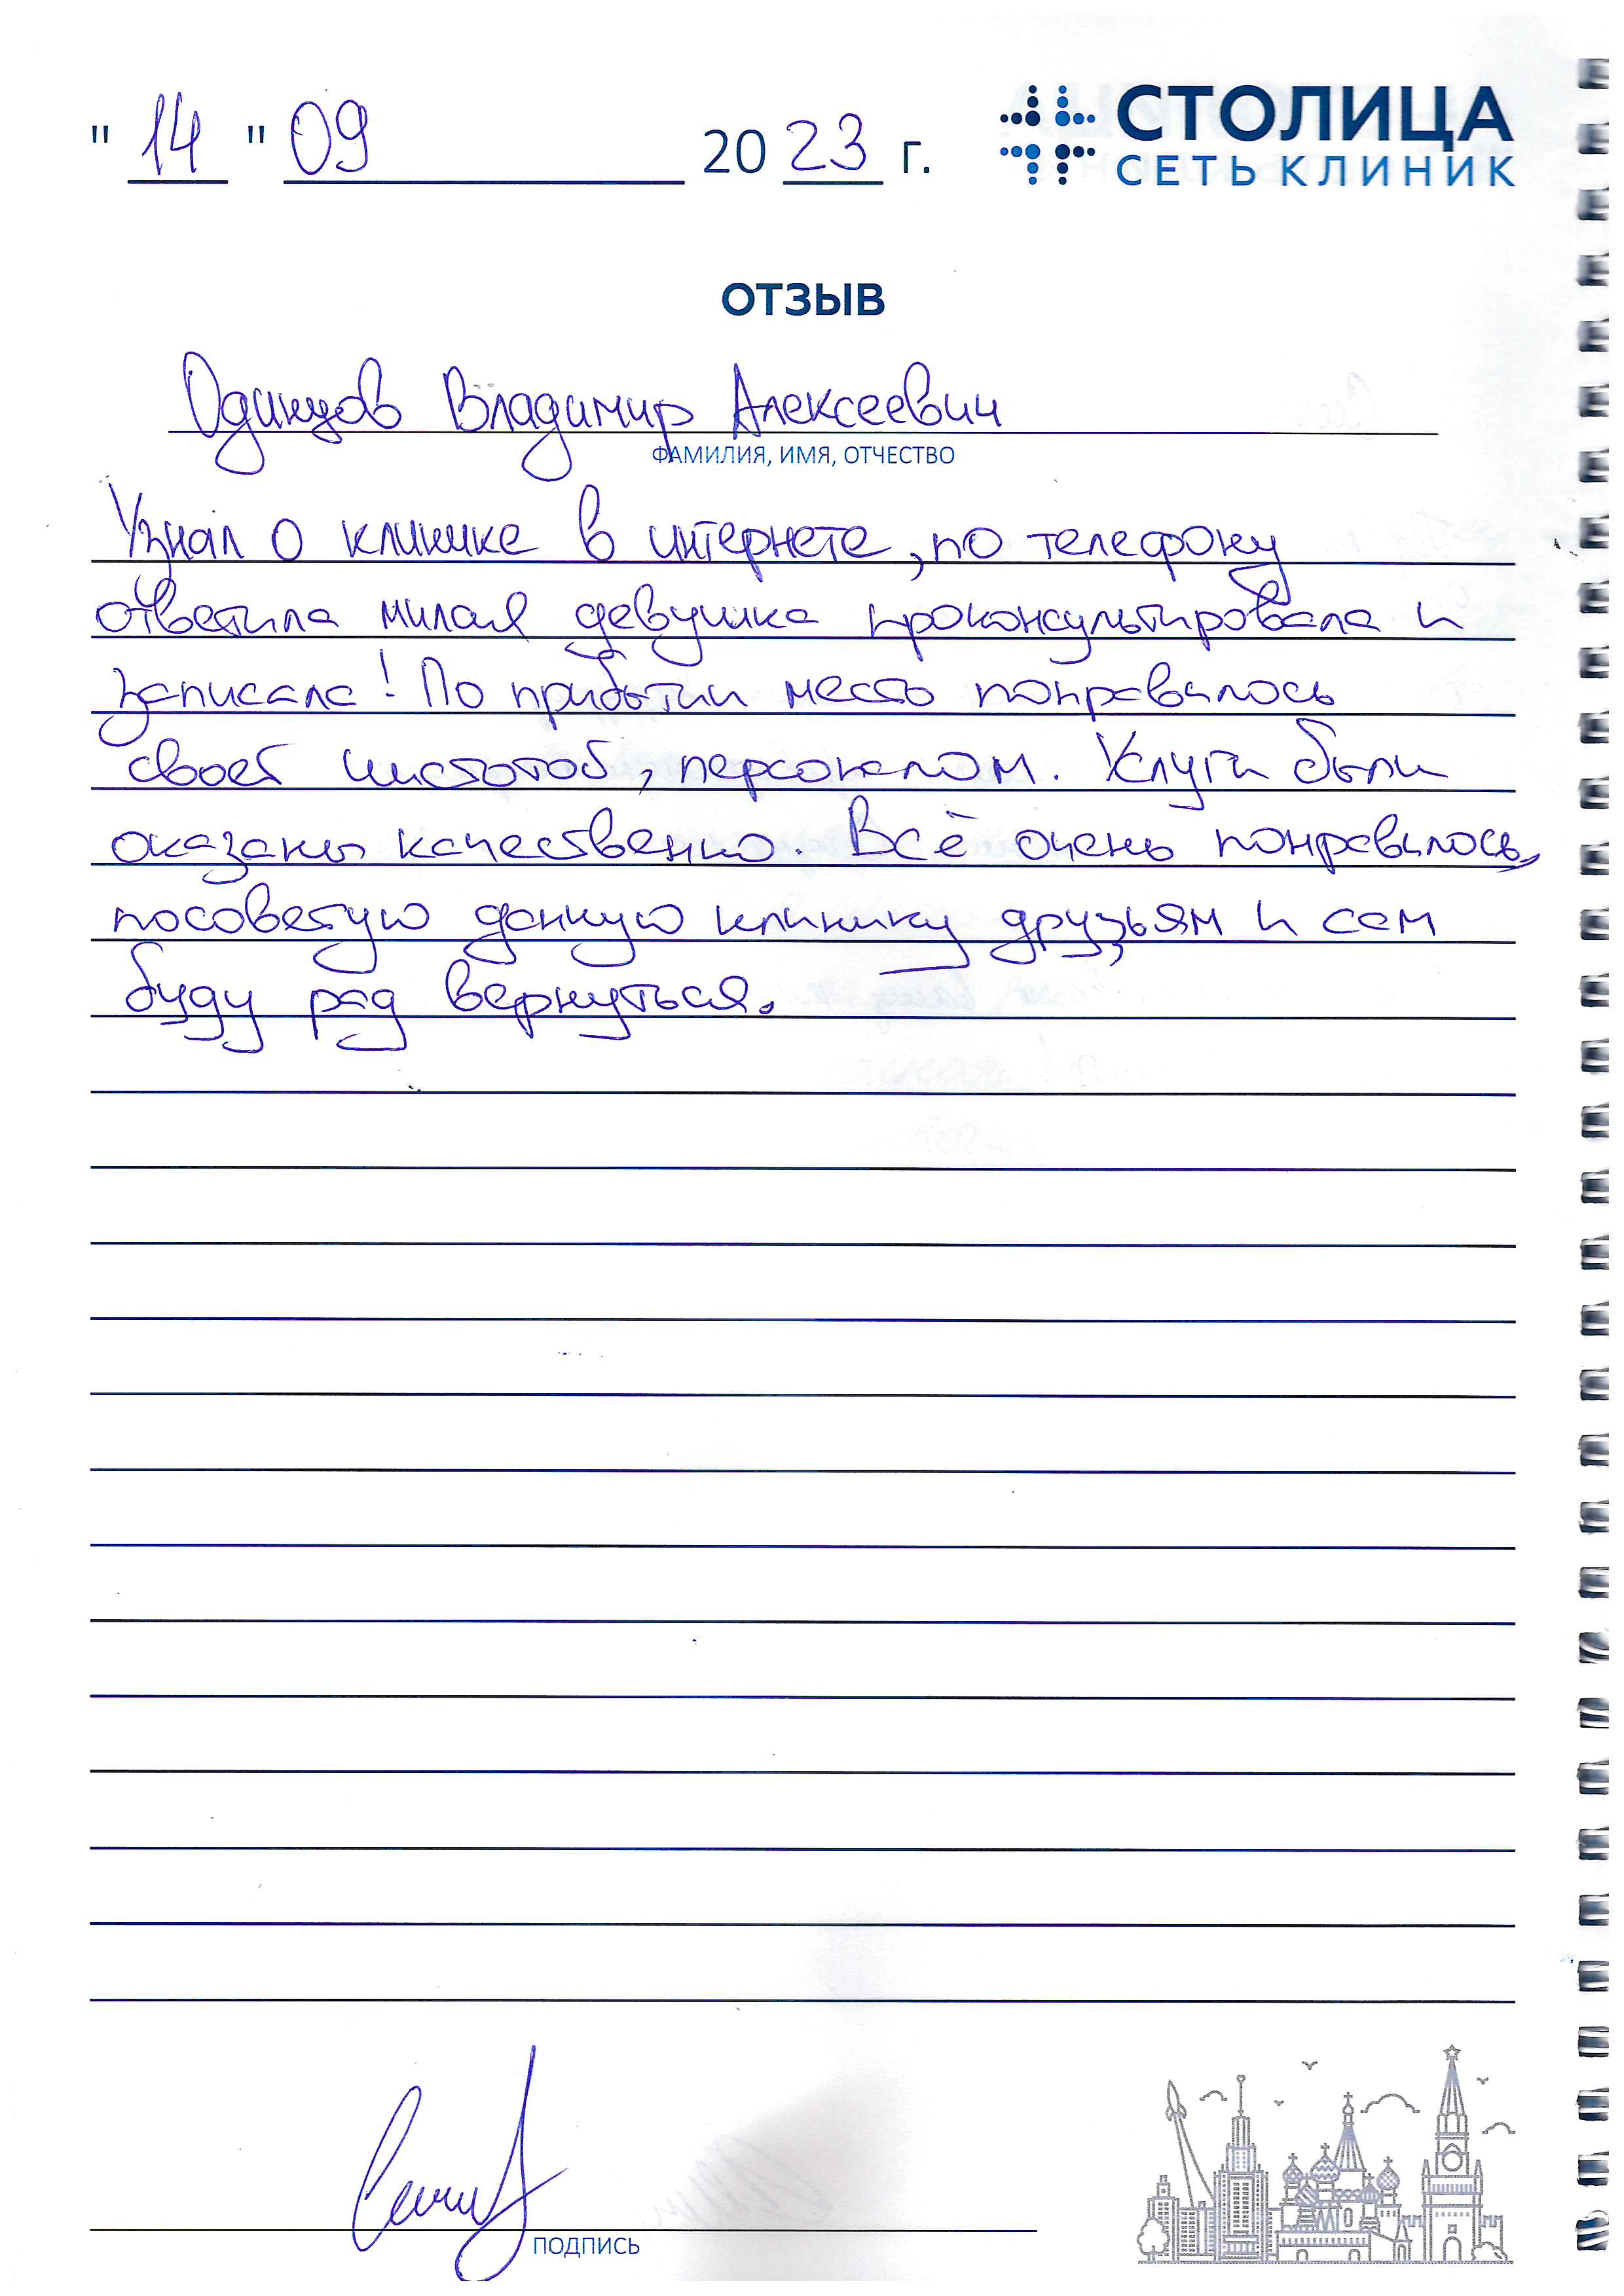 " 14 " 09 20 23 г.
СТОЛИЦА
СЕТЬ КЛИНИК
ОТЗЫВ
Одинцов Владимир Алексеевич
ФАМИЛИЯ, ИМЯ, ОТЧЕСТВО
Узнал о клинике в интернете, по телефону
ответила милая девушка проконсультировала и
записала! По прибытии место понравилось
своей чистотой, персоналом. Услуги были
оказаны качественно. Всё очень понравилось,
посоветую данную клинику друзьям и сам
буду рад вернуться.
ПОДПИСЬ